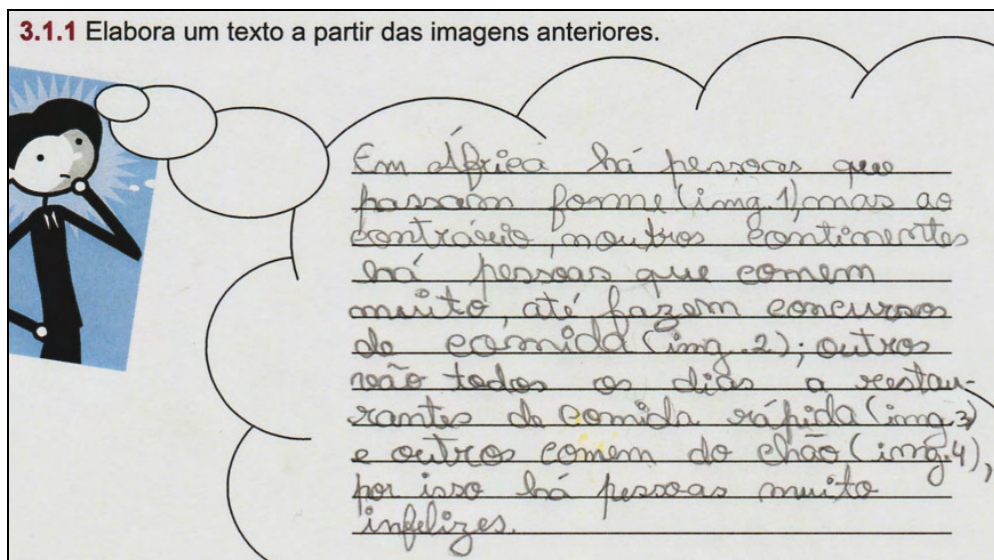 3.1.1 Elabora um texto a partir das imagens anteriores.
Em África há pessoas que
passam fome (img. 1), mas ao
contrário, noutros continentes
há pessoas que comem
muito, até fazem concursos
de comida (img. 2); outros
vão todos os dias a restau-
rantes de comida rápida (img. 3)
e outros comem do chão (img. 4),
por isso há pessoas muito
infelizes.